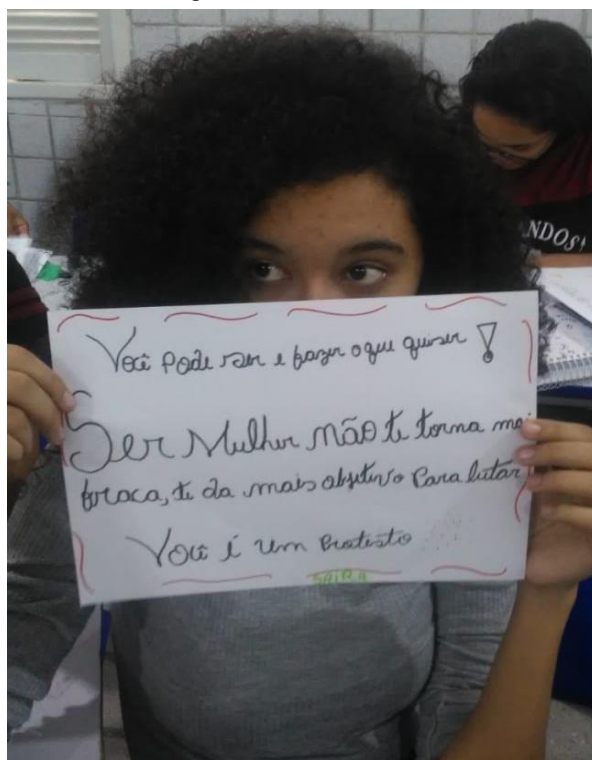 Você pode ser e fazer o que quiser!
Ser Mulher não te torna mai
fraca, te da mais objetivo Para lutar
Você é um Protesto
NDOS